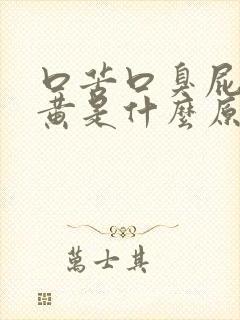 口苦口臭屁
黄是什麼原
萬士其